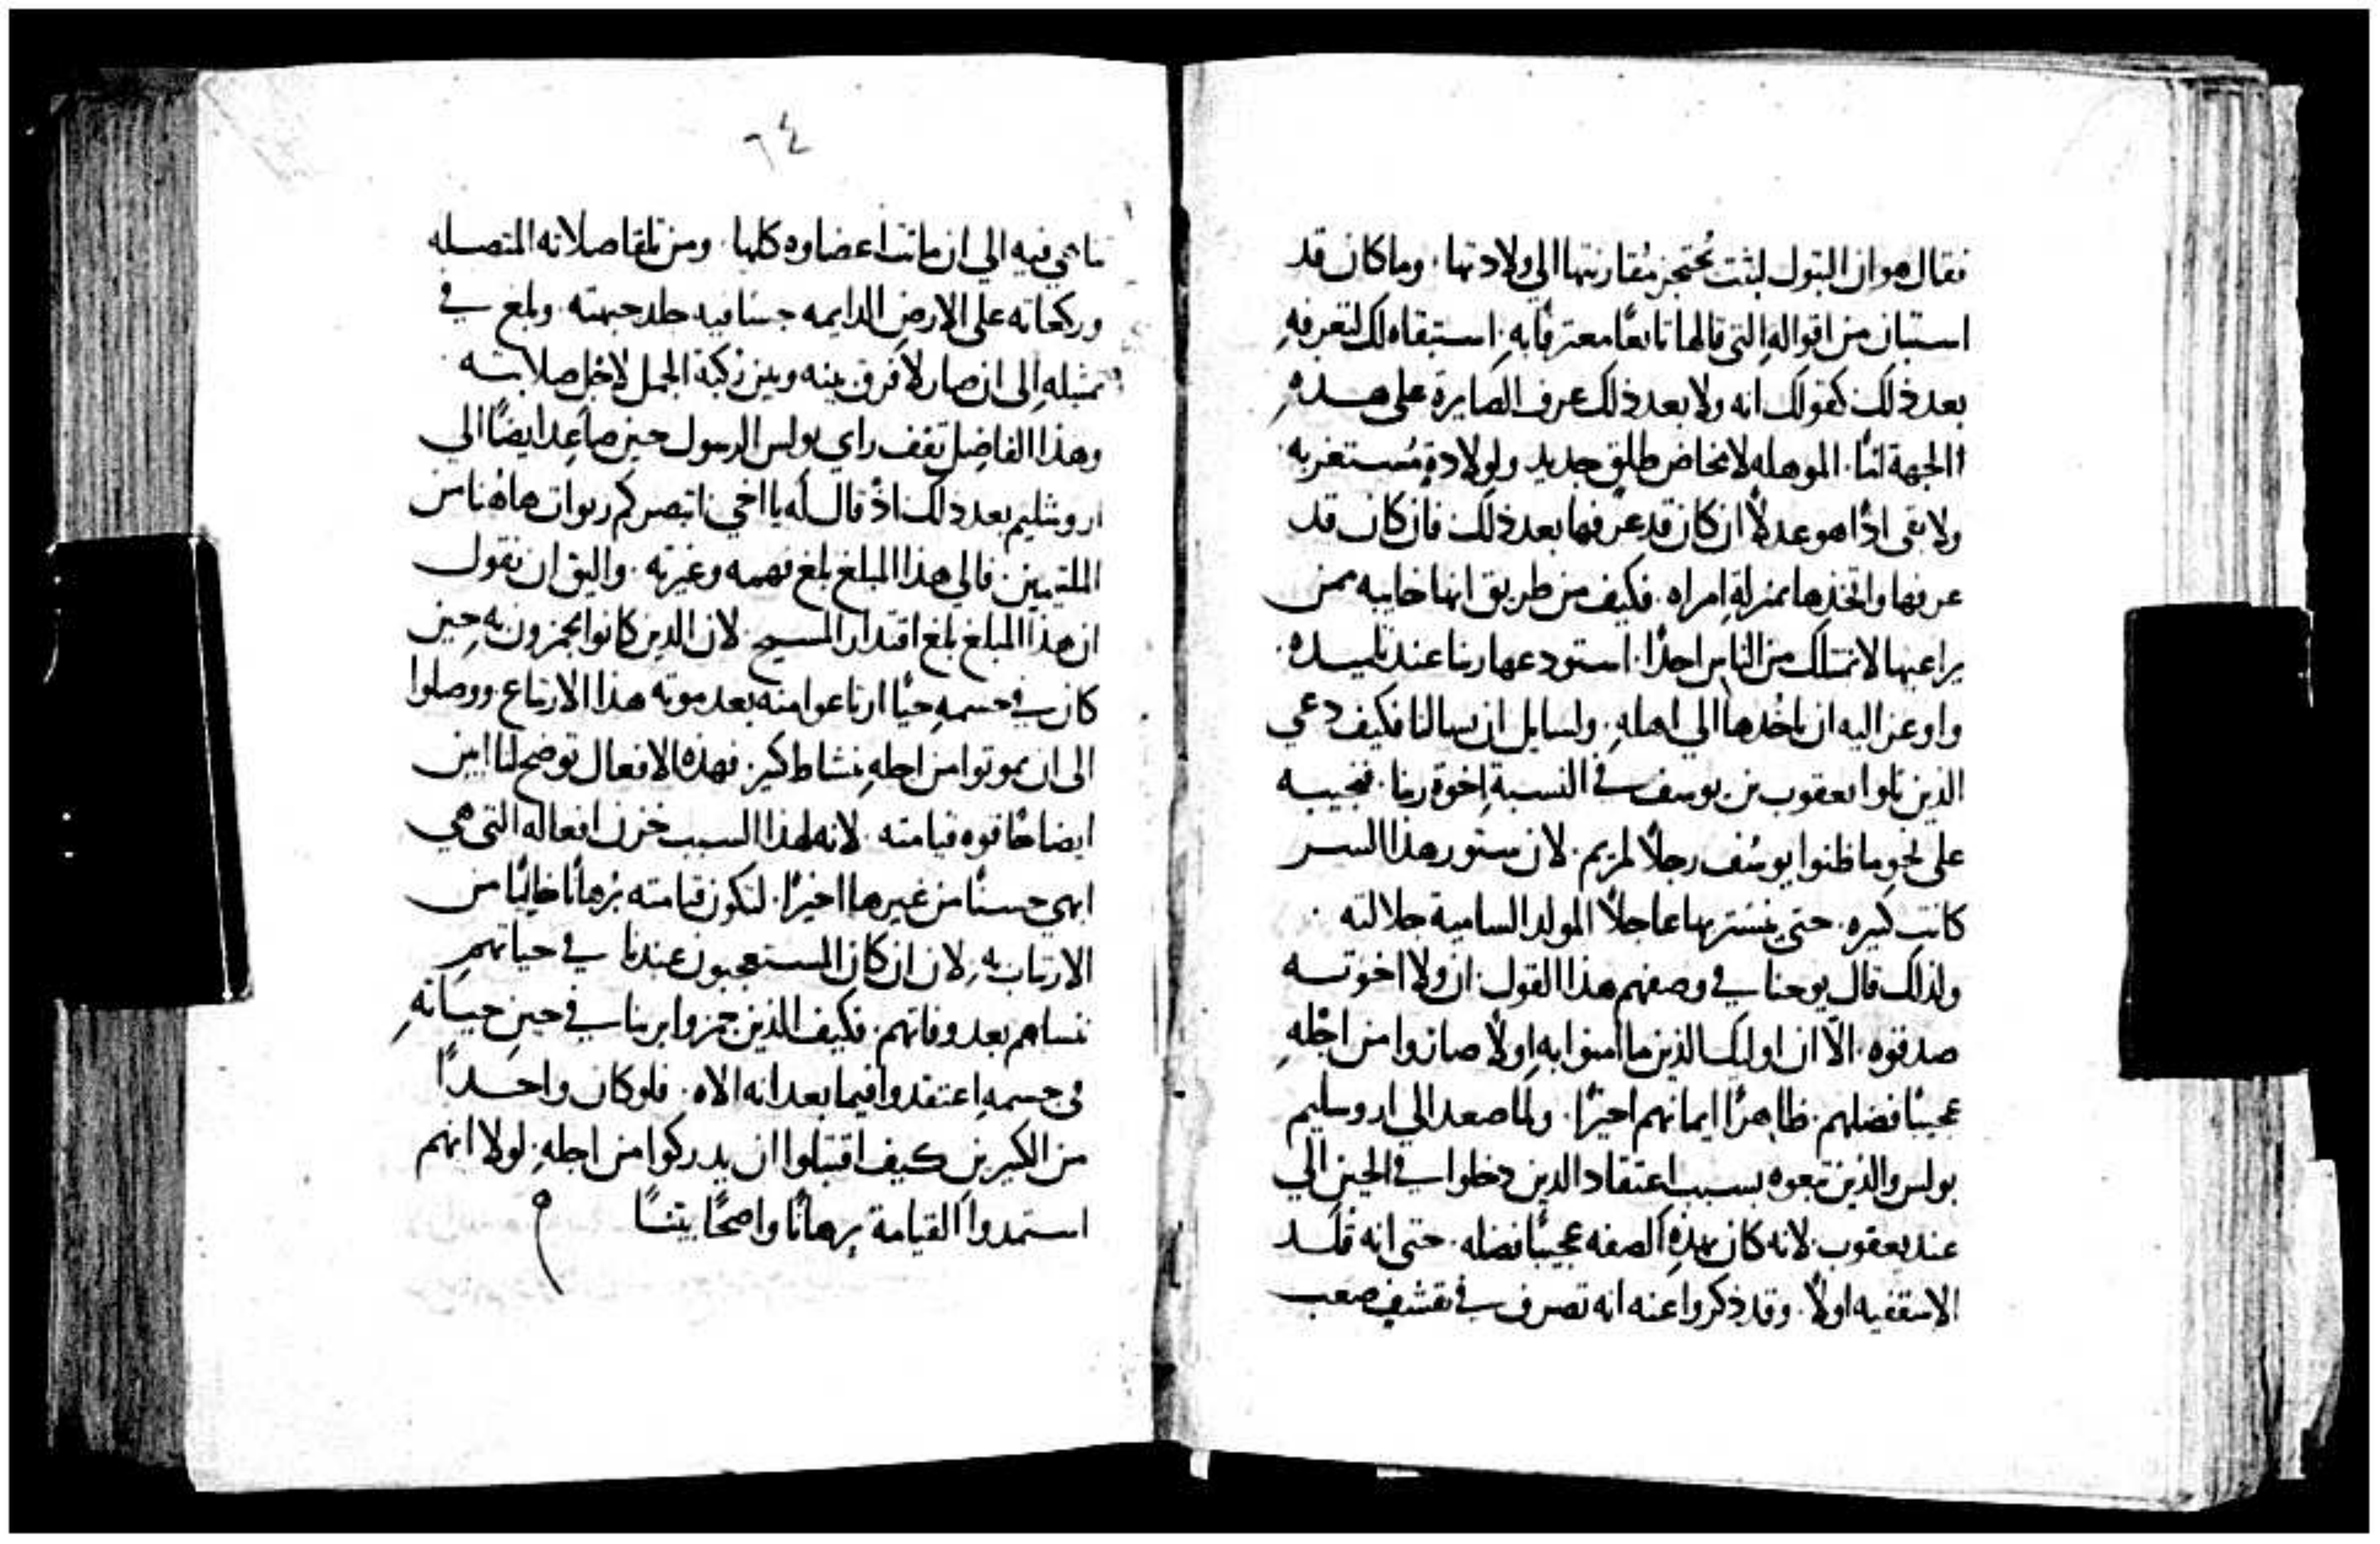 فقال هو ان البتول لبثت تحتجز مقاربتها الي ولادتها. وما كان قد
استبان من اقواله التي قالها تابعًا معترفًا به. استبقاه لك لتعرفه
بعد ذلك كقولك انه ولا بعد ذلك عرف الصايرة على هذه
الجهة امًا. الموهله لامخاض طلق جديد ولولادة مستغربه.
ولا بقى اذًا هو عدلًا ان كان قد عرفها بعد ذلك فان كان قد
عرفها واتخذها بمنزلة امراه. فكيف من طريق انها خايبه ممن
يراعيها لا تمتلك من الناس احدًا. استودعها ربنا عند تلميذه.
واوعز اليه ان ياخذها الي اهله. ولسايل ان يسالنا فكيف دعي
الذين تلوا يعقوب بن يوسف في النسبة اخوة ربنا. فنجيبه
على نحو ما ظنوا يوسف رجلًا لمريم. لان ستور هذا السر
كانت كثيره. حتى يستتر بها عاجلًا المولد السامية جلالته.
ولذلك قال يوحنا في وصفهم هذا القول ان ولا اخوته
صدقوه. الا ان اوليك الذين ما امنوا به اولًا صاروا من اجله
عجيبًا فضلهم. ظاهرًا ايمانهم اخيرًا. ولما صعد الي اروسليم
بولس والذين تبعوه بسبب اعتقاد الذين دخلوا في الحين الي
عند يعقوب لانه كان بهذه الصفه عجيبًا فضله. حتى انه قلد
الاسقفيه اولًا. وقد ذكروا عنه انه تصرف في تقشف صعب
٦٤
تناهي فيه الي ان ماتت اعضاوه كلها. ومن تلقا صلاته المتصله
وركعاته على الارض الدايمه جسا فيه جلد جبهته. وبلغ في
تمثله الى ان صار لا فرق بينه وبين ركبة الجمل لاجل صلابته.
وهذا الفاضل ثقف راي بولس الرسول حين صاعد ايضًا الي
اروشليم بعد ذلك اذ قال له يا اخي اتبصر كم ربوات هاهنا من
الملتيمين. فالي هذا المبلغ بلغ فهمه وغيرته. واليق ان نقول
ان هذا المبلغ بلغ اقتدار المسيح. لان الذين كانوا يجمزون به حين
كان في جسمه حيًا ارتاعوا منه بعد موته هذا الارتياع. ووصلوا
الى ان يموتوا من اجله بنشاط كثير. فهذه الافعال توضح لنا ابين
ايضاحًا قوه قيامته. لانه لهذا السبب خزن افعاله التي هي
ابهي حسنًا من غيرها اخيرًا. لتكون قيامته برهانًا خاليًا من
الارتياب به. لان ان كان المستعجبون عندنا في حياتهم
ننساهم بعد وفاتهم. فكيف الذين جمزوا بربنا في حين حياته
في جسمه اعتقدوا فيما بعد انه الاه. فلو كان واحدًا
من الكثيرين كيف اقتبلوا ان يدركوا من اجله. لولا انهم
استمدوا القيامة برهانًا واضحًا بيتنًا